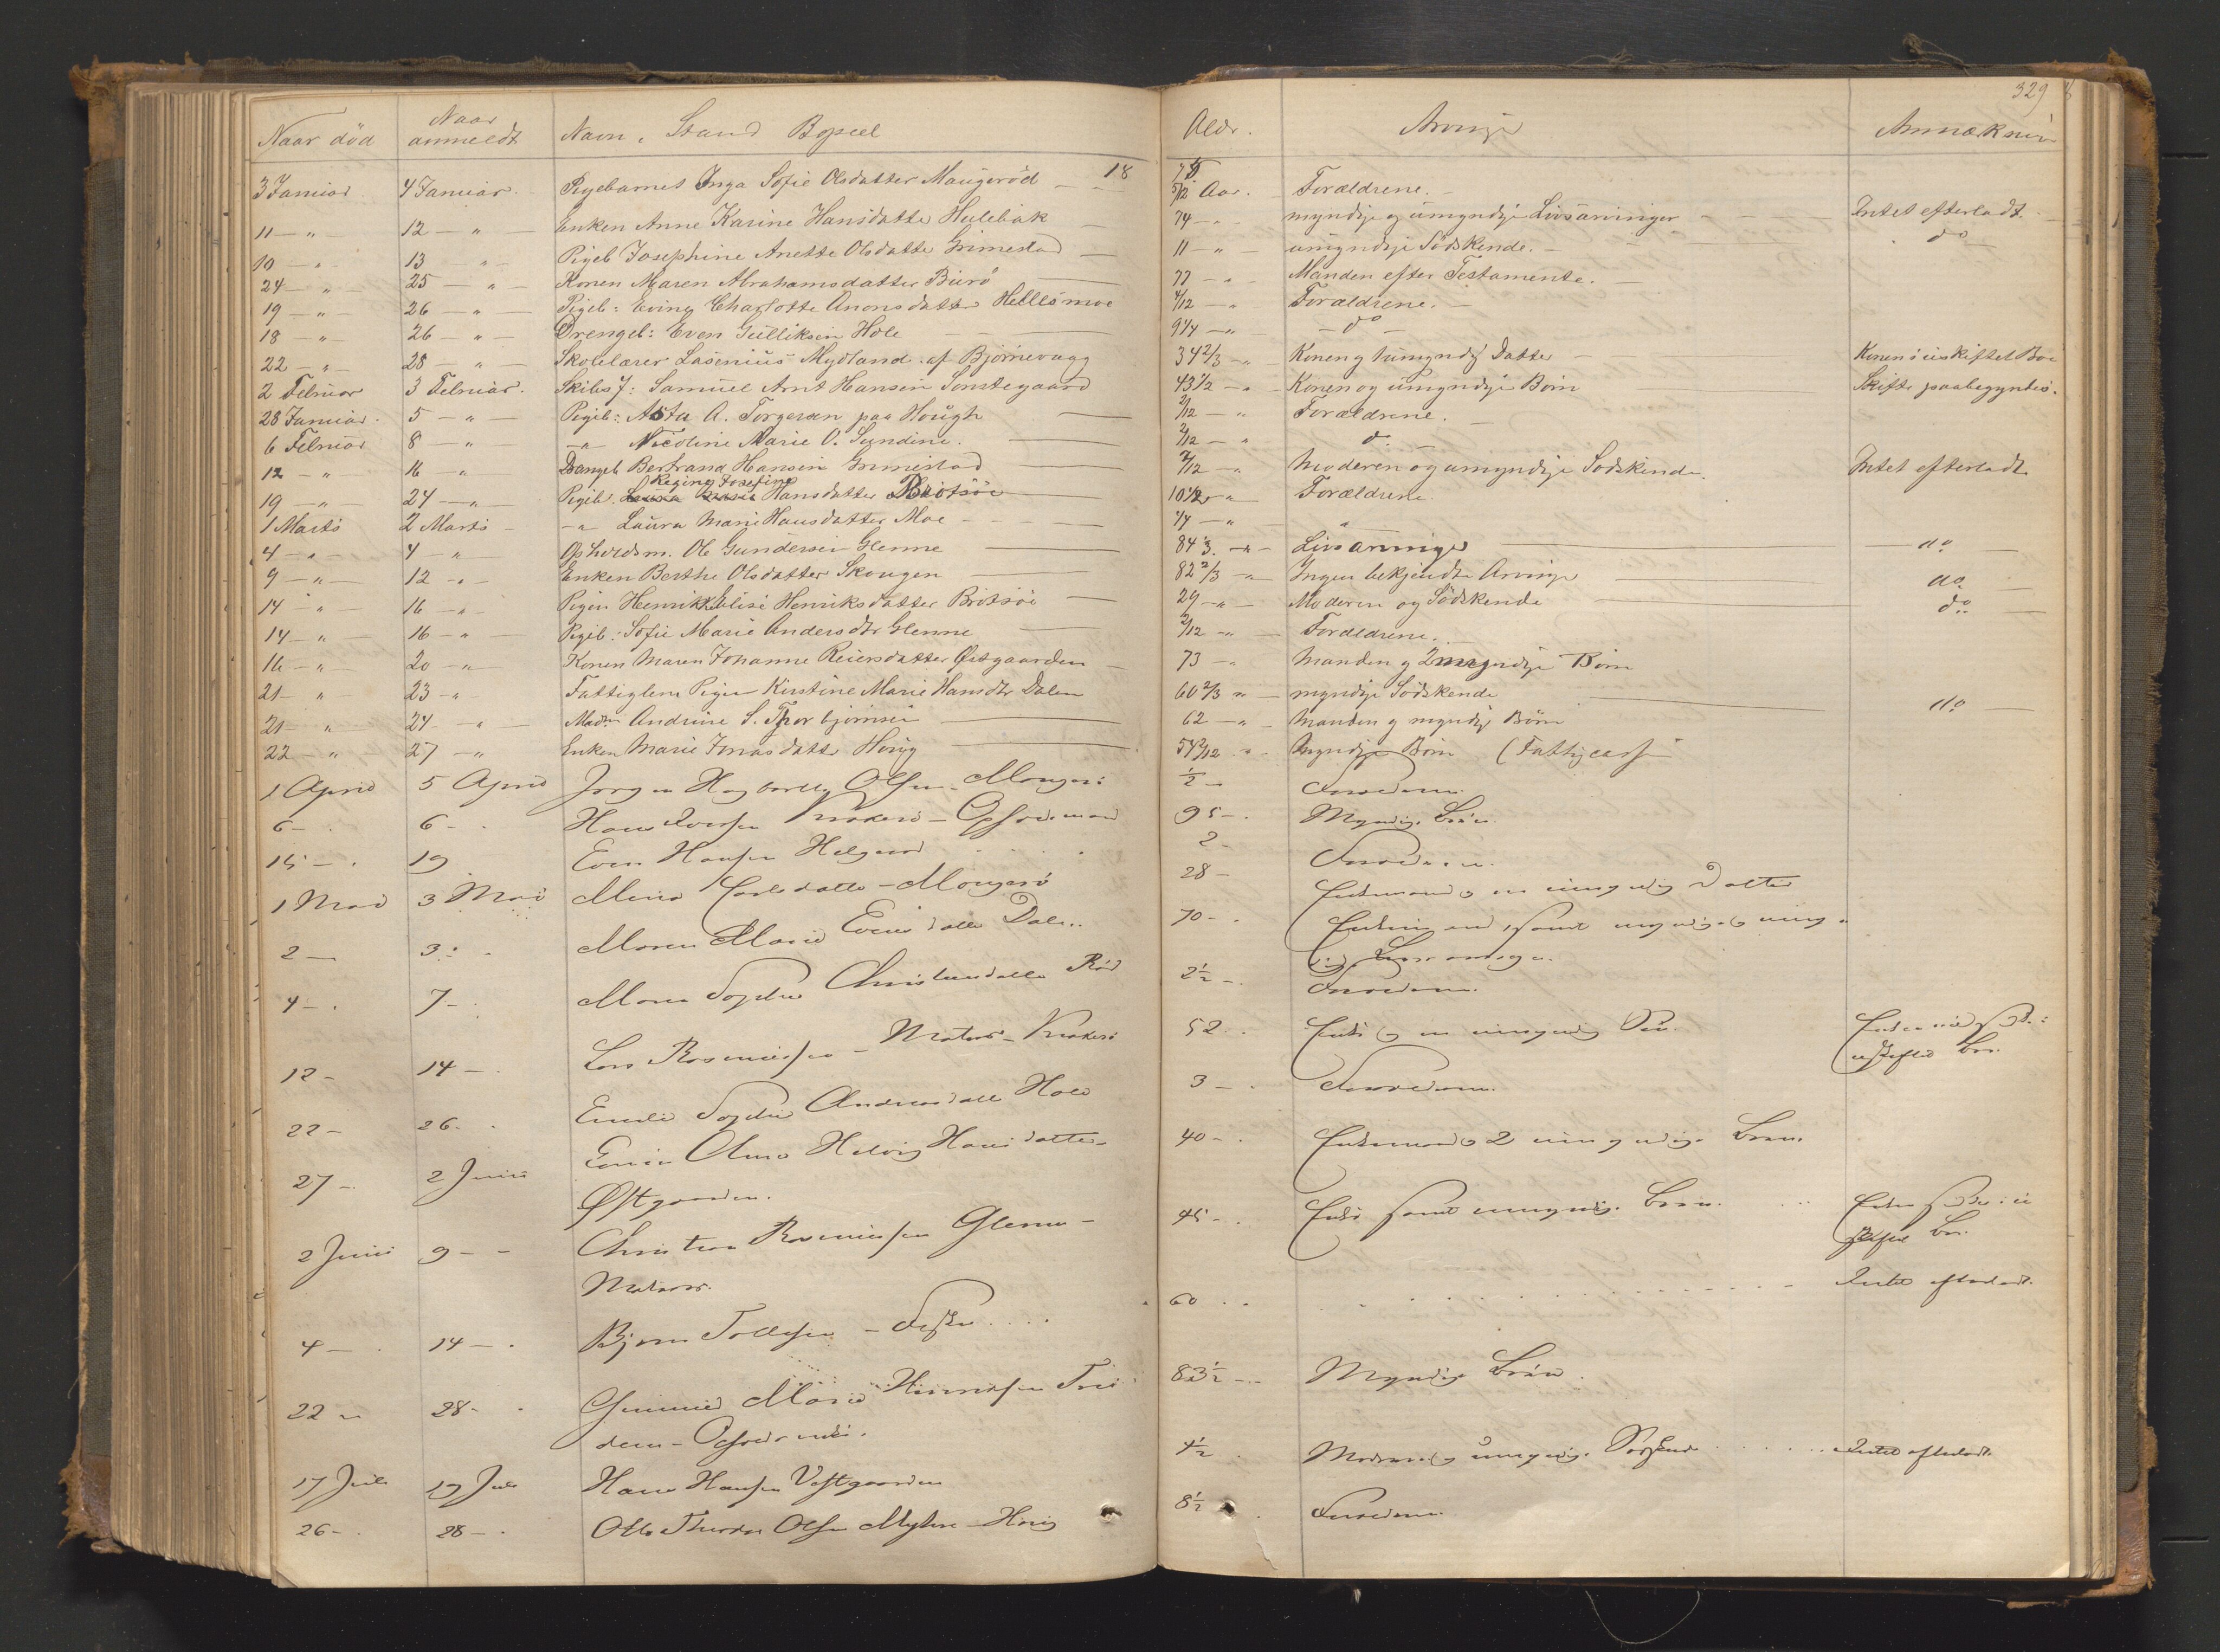 329
Naar död | Naar anmeldt | Navn, Stand Bopæl | Aldr. | Arvinger | Anmærknin
18 | 75
3 Januar | 4 Januar | Pigebarnet Inga Sofie Olsdatter Maugerød | 5/12 Aar. | Forældrene.
11 — " | 12 — " | Enken Anne Karine Hansdatter Hulebak | 74 — " | myndige og umyndige Livsarvinger | Intet efterladt
10 — " | 13 — " | Pigeb Josephine Anette Olsdatter Grimestad | 11 — " | umyndige Södskende. | do
24 — " | 25 — " | Konen Maren Abrahamsdatter Burö | 77 — " | Manden efter Testamente.
19 — " | 26 — " | Pigeb: Eving Charlotte Anonsdatter Hellesmoe | 4/12 — " | Forældrene.
18 — " | 26 — " | Drengeb: Even Gulliksen Hole | 9 1/4 — " | do
22 — " | 28 — " | Skolelærer Lasenius Mydland af Bjørnevaag | 34 2/3 — " | Konen og 1 umyndig Datter | Konen i uskiftet Boe
2 Februar | 3 Februar. | Skibsf: Samuel Arnt Hansen Sonstegaard | 43 1/2 — " | Konen og umyndige Börn | Skifte paabegyndes.
28 Januar. | 5 — " | Pigeb: Asta A. Torgersen paa Hough | 2/12 — " | Forældrene.
6 Februar | 8 — " | — " Nicoline Marie O. Sundene. | 2/12 — " | do
12 — " | 16 — " | Drengeb Bertrand Hansen Grimestad | 2/12 — " | Moderen og umyndige Södskende. | Intet efterladt
Regine Josefine
19 — " | 24 — " | Pigeb. Laura Marie Hansdatter Brötsöe | 10 1/2 — " | Forældrene
1 Marts | 2 Marts | — " Laura Marie Hansdatter Moe | 1/4 — " | "
4 — " | 4 — " | Opholdsm. Ole Gundersen Glenne | 84 1/3. — " | Livsarvinger | do
9 — " | 12 — " | Enken Berthe Olsdatter Skougen | 82 2/3 — " | Ingen bekjendte Arvinger | do
14 — " | 16 — " | Pigen Henrikke Elise Henriksdatter Brötsöe | 29 — " | Moderen og Södskende | do
14 — " | 16 — " | Pigeb: Sofie Marie Andersdtr Glenne | 2/12 — " | Forældrene.
16 — " | 20 — " | Konen Maren Johanne Reiersdatter Østgaarden | 73 — " | Manden og 2 myndige Börn
21 — " | 23 — " | Fattiglem Pigen Kirstine Marie Hansdtr Dalen | 60 2/3 " | myndige Södskende | do
21 — " | 24 — " | Madm Andrine S. Thorbjörnsen | 62 — " | Manden og myndige Börn
22 — " | 27 — " | Enken Marie Jonasdatter Houg | 54 2/12 " | Myndige Börn (Fattigcasse
1 April | 5 April | Jörgen Hagbarth Olsen | 1/2 — | Forældrene.
6 — | 6 — | Hans Iversen Krakerö — Opholdsmand | 95 — | Myndige Börn
15 — | 19 | Even Hansen Helgerød | 2 — | Forældrene.
1 Mai | 3 Mai | Mina Carlsdatter | 28 — | Enkemand og en umyndig Datter
2 — | 3 | Maren Marie Evensdatter Dalen | 70 — | Enkemand, samt myndige og umyn-
dige Livsarvinger.
4 — | 7 — | Maren Sophie Christensdatter Röd | 2 1/2 — | Forældrene.
12 — | 14 — | Lars Rasmussen — Matros — Krakerö | 52 | Enke og en umyndig Sön. | Enken i
uskiftet Bo.
22 — | 26. | Emilie Sophie Andreasdatter Hole | 3 — | Forældrene.
27 — | 2 Juni | Anna Helvig Hansdatter | 40 — | Enkemand og 2 umyndige Börn.
Østgaarden.
2 Juni | 9 — | Christian Rasmussen Glenne — | 45 — | Enke samt umyndige Börn. | Enken sidder i u-
Matros. | skiftet Bo.
4 — | 14 — | Björn Tollefsen — Fisker | 60 | Intet efterladt.
22 — | 28 — | Marie Hinrichsen | 83 1/2 — | Myndige Börn.
17 Juli | 19 Juli | Hans Hansen Vestgaarden | 4 1/2 | Moderen og umyndige Södskende | Intet efterladt.
26 — | 28 — | Otto Theodor Olsen Myhre — Houg | 8 1/2 | Forældrene.